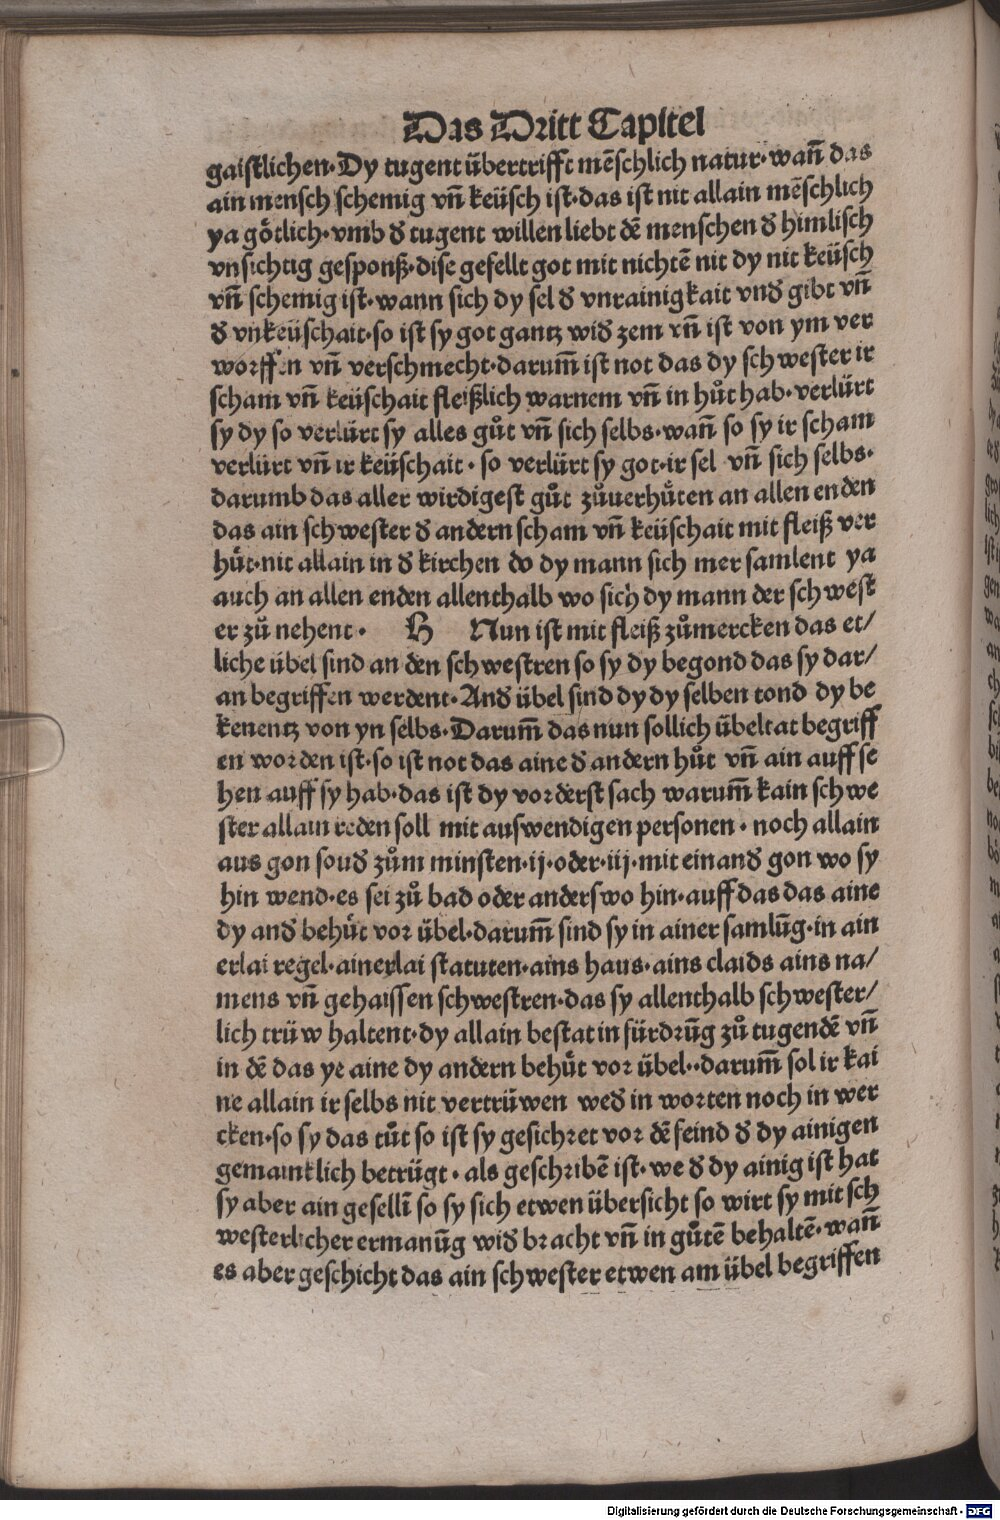 Das Dritt Capitel
gaistlichen·Dy tugent übertrifft mēschlich natur·wañ das
ain mensch schemig vñ keüsch ist·das ist nit allain mēschlich
ya gôtlich·vmb ď tugent willen liebt dē menschen ď himlisch
vnsichtig gesponß·dise gefellt got mit nichtē nit dy nit keüsch
vñ schemig ist·wann sich dy sel ď vnrainigkait vnď gibt vñ
ď vnkeüschait·so ist sy got gantz wiď zem vñ ist von ym ver
worffen vñ verschmecht·darum̃ ist not das dy schwester ir
scham vñ keüschait fleißlich warnem vñ in hůt hab·verlürt
sy dy so verlürt sy alles gůt vñ sich selbs·wañ so sy ir scham
verlürt vñ ir keüschait·so verlürt sy got·ir sel vñ sich selbs·
darumb das aller wirdigest gůt zůuerhuͤten an allen enden
das ain schwester ď andern scham vñ keüschait mit fleiß ver
huͤt·nit allain in ď kirchen do dy mann sich mer samlent ya
auch an allen enden allenthalb wo sich dy mann der schwest
er zů nehent· H Nun ist mit fleiß zůmercken das et/
liche übel sind an den schwestren so sy dy begond das sy dar/
an begriffen werdent·Anď übel sind dy dy selben tond dy be
kenentz von yn selbs·Darum̃ das nun sollich übeltat begriff
en worden ist·so ist not das aine ď andern hůt vñ ain auff se
hen auff sy hab·das ist dy vorderst sach warum̃ kain schwe
ster allain reden soll mit auswendigen personen·noch allain
aus gon souď zům minsten·ij·oder·iij·mit einanď gon wo sy
hin wend·es sei zů bad oder anderswo hin·auff das das aine
dy anď behuͤt vor übel·darum̃ sind sy in ainer samlūg·in ain
erlai regel·ainerlai statuten·ains haus·ains claids ains na/
mens vñ gehaissen schwestren·das sy allenthalb schwester/
lich trüw haltent·dy allain bestat in fürdrūg zů tugendē vñ
in dē das ye aine dy andern behuͤt vor übel··darum̃ sol ir kai
ne allain ir selbs nit vertrüwen weď in worten noch in wer
cken·so sy das tuͤt so ist sy gesichret vor dē feind ď dy ainigen
gemainklich betrügt·als geschribē ist·we ď dy ainig ist hat
sy aber ain gesellī so sy sich etwen übersicht so wirt sy mit sch
westerlicher ermanūg wiď bracht vñ in guͤtē behaltē·wañ
es aber geschicht das ain schwester etwen am übel begriffen
Digitalisierung gefördert durch die Deutsche Forschungsgemeinschaft - DFG